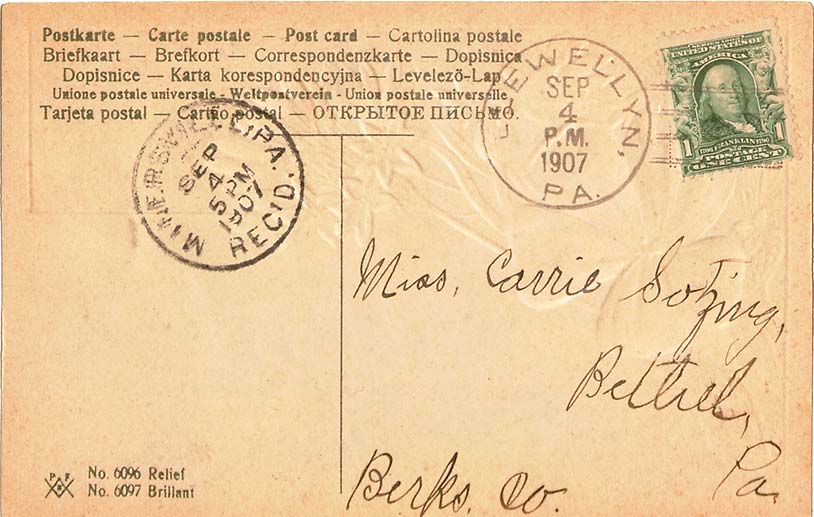 Postkarte — Carte postale — Post card — Cartolina postale
Briefkaart — Brefkort — Correspondenzkarte — Dopisnica
Dopisnice — Karta korespondencyjna — Levelező-Lap
Unione postale universale - Weltpostverein - Union postale universelle
Tarjeta postal — Cartão postal — ОТКРЫТОЕ ПИСЬМО.
LLEWELLYN,
SEP
4
P.M.
1907
PA.
SERIES 1902
UNITED STATES OF
AMERICA
1706 FRANKLIN 1790
1 POSTAGE 1
ONE CENT
MINERSVILLE, PA.
SEP
4
5 PM
1907
REC'D.
Miss, Carrie
Bethel,
Berks. Co. Pa.
P F
B
No. 6096 Relief
No. 6097 Brillant